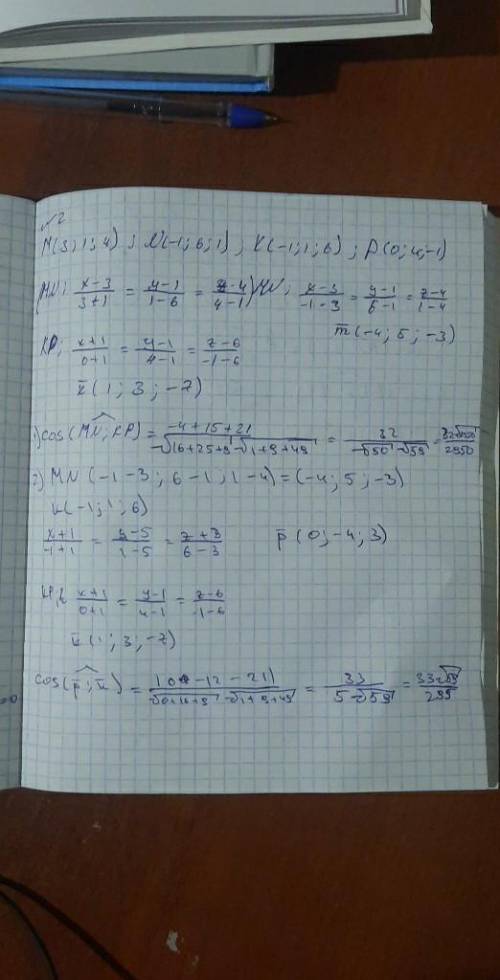 √2
M(3; 1; 4) ; N(-1; 6; 1) ; K(-1; 1; 6) ; P(0; 4; -1)
(MN: x-3/3+1 = y-1/1-6 = z-4/4-1) MN: x-3/-1-3 = y-1/6-1 = z-4/1-4
m̅(-4; 5; -3)
KP: x+1/0+1 = y-1/4-1 = z-6/-1-6
k̅(1; 3; -7)
1) cos(MN; KP) = -4+15+21/√16+25+9 √1+9+49 = 32/√50 √59 = 32√2950/2950
2) MN (-1-3; 6-1; 1-4) = (-4; 5; -3)
K(-1; 1; 6)
x+1/-1+1 = y-5/1-5 = z+3/6-3 p̅(0; -4; 3)
x+1/0+1 = y-1/4-1 = z-6/-1-6
k̅(1; 3; -7)
cos(p̅; k̅) = |0-12-21|/√0+16+9 √1+9+49 = 33/5√59 = 33√59/295